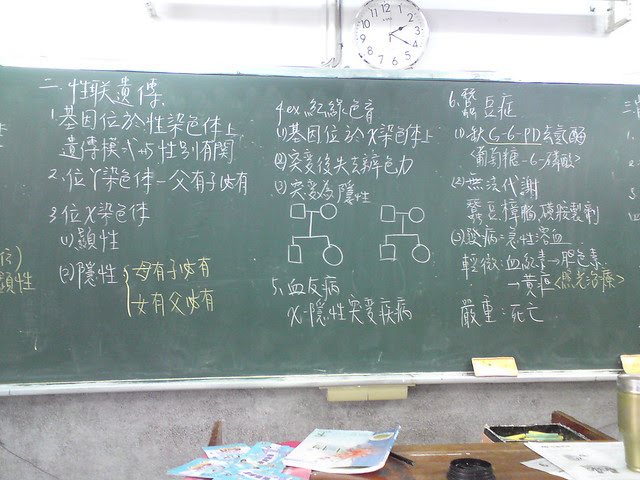 二. 性联遺傳
1. 基因位於性染色体上
遺傳模式與性別有関
2. 位Y染色体－父有子必有
3. 位X染色体
(1) 顯性
(2) 隱性
母有子必有
女有父必有
顯性
4. ex. 紅綠色盲
(1) 基因位於X染色体上
(2) 突变後失去辨色力
(3) 突変為隱性
5. 血友病
X-隱性突変疾病
6. 蠶豆症
(1) 缺G-6-PD去氫酶
<葡萄糖-6-磷酸>
(2) 無法代謝
蠶豆、樟腦、磺胺製剤
(3) 發病:急性溶血
輕微:血紅素→胆色素
→黄疸<照光治療>
嚴重:死亡
12 1 2 3 4 5 6 7 8 9 10 11